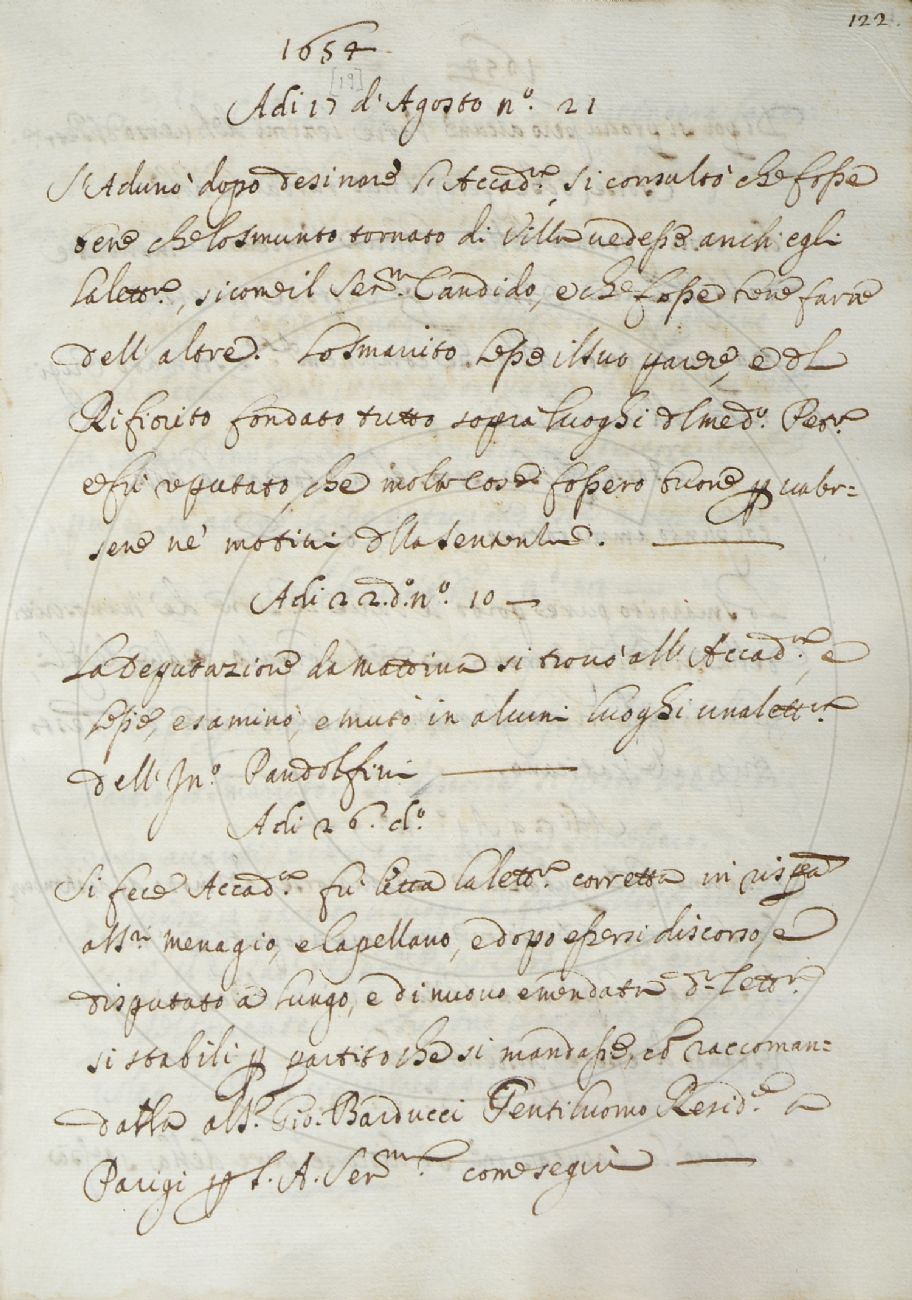 122.
1654
[19]
Adi 17 d'Agosto n.º 21
S'Adunò dopo desinare l'Accad.ª, si consultò che fosse
bene che lo Smunto tornato di Villa vedesse anch'egli
la lett.ra, sicome il Ser.mo Candido, e che fosse bene farne
dell'altre. Lo Smarrito lesse il suo parere, e dl
Rifiorito fondato tutto sopra luoghi dl med.º Petr.ª
e fù reputato, che molte cose fossero buone p valer=
sene ne' motivi dlla Sentenza.
Adi 22. d.º n.º 10
La Deputazione da mattina si trovò all'Accad.ª, e
lesse, esaminò, e mutò in alcuni luoghi una lett.ra
dell'Inº Pandolfini
Adi 26. d.º
Si fece Accad.ª fù letta la lett.ra corretta in rispta
a SS.ri Menagio, e Capellano, e dopo essersi discorso, e
disputato à lungo, e di nuovo emendata d.ª Lett.ra
si stabilì p partito che si mandasse, et raccoman=
datla al S.r Gio: Barducci Gentiluomo Resid.e a
Parigi p S. A. Ser.ma come seguì